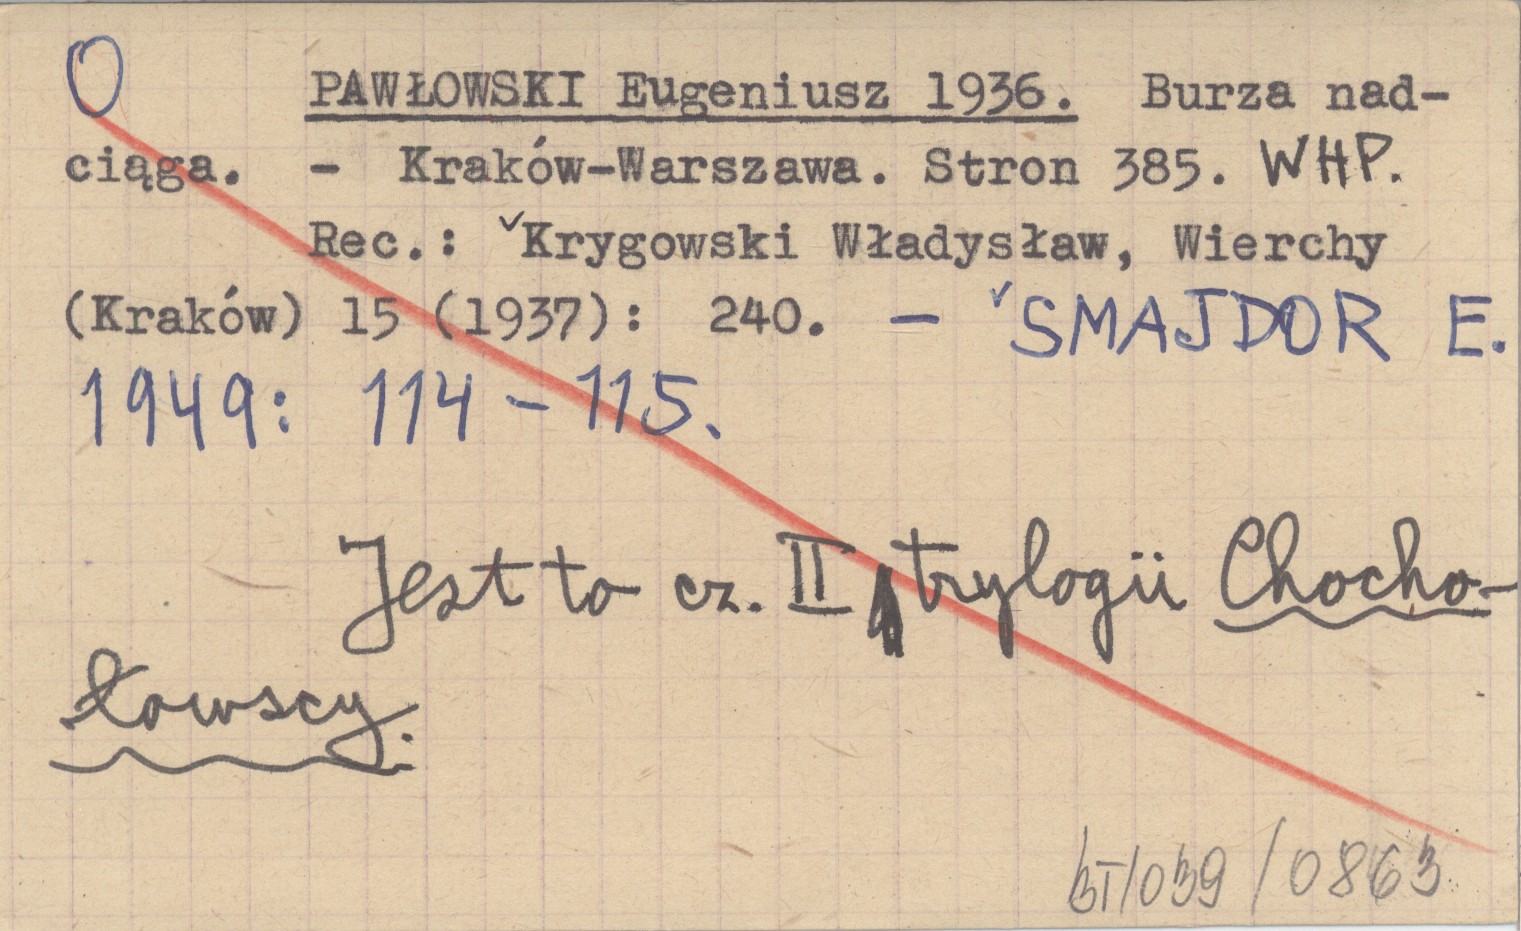 O PAWŁOWSKI Eugeniusz 1936. Burza nad-
ciąga. - Kraków-Warszawa. Stron 385. WHP.
Rec.: ✓Krygowski Władysław, Wierchy
(Kraków) 15 (1937): 240. - ✓SMAJDOR E.
1949: 114-115.
Jest to cz. II trylogii Chocho-
łowscy.
BT/039/0863